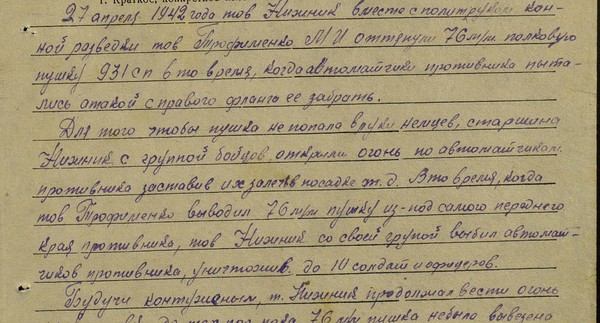 27 апреля 1942 года тов Нижник вместе с политруком кон-
ной разведки тов Трофименко М И оттянули 76 м/м полковую
пушку 931 сп в то время, когда автоматчики противника пыта-
лись атакой с правого фланга ее забрать.
Для того чтобы пушка не попала в руки немцев, старшина
Нижник с группой бойцов, открыли огонь по автоматчикам
противника заставив их залечь в посадке ж. д. В то время, когда
тов Трофименко выводил 76 м/м пушку из-под самого переднего
края противника, тов Нижник со своей групой выбил автомат-
чиков противника, уничтожив до 10 солдат и офицеров.
Будучи контуженым, т. Нижник продолжал вести огонь
до тех пор пока 76 м/м пушка небыло вывезена